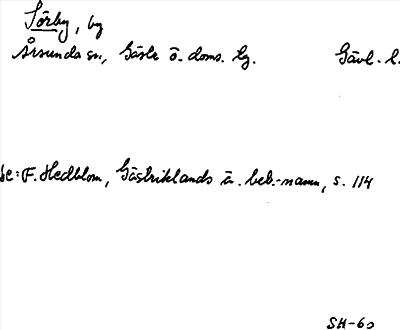 Sörby, by
Årsunda sn, Gästr ö. doms. lg. Gävl. l.
Se: F. Hedblom, Gästriklands ä. beb.-namn, s. 114
SH-60